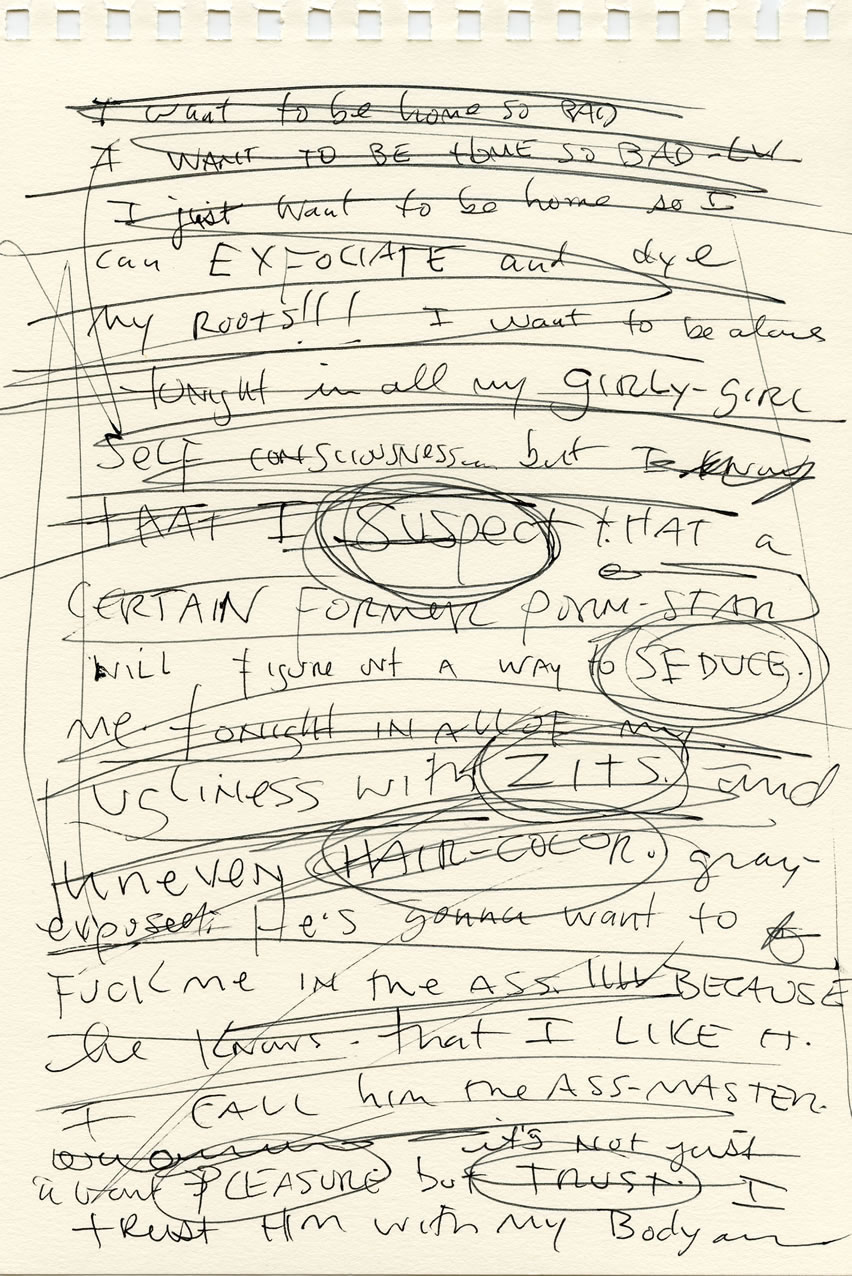 I want to be home so BAD
I WANT TO BE HOME SO BAD-LY
I just want to be home so I
can EXFOCIATE and dye
my ROOTS!!! I want to be alone
tonight in all my GIRLY-GIRL
SELF CONSCIOUSNESS... but I know
tHAt I SUSPECT tHAT a
CERTAIN FORMER PORN-STAR
WILL FIGURE OUT A WAY to SEDUCE.
me. tonight IN ALL OF my
UGLINESS with ZITS. and
uneven HAIR-COLOR. gray-
exposed. He's gonna want to
FUCK me IN the ASS. BECAUSE
he KNOWS. that I LIKE it.
I CALL him the ASS-MASTER.
it's NOT just
a want PLEASURE but TRUST. I
tRUST HIM WITH MY Body an